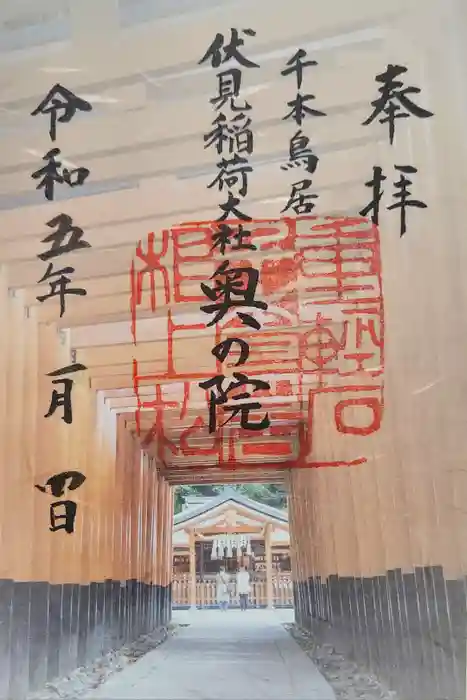 奉拝
千本鳥居
伏見稲荷大社奥の院
令和五年一月四日